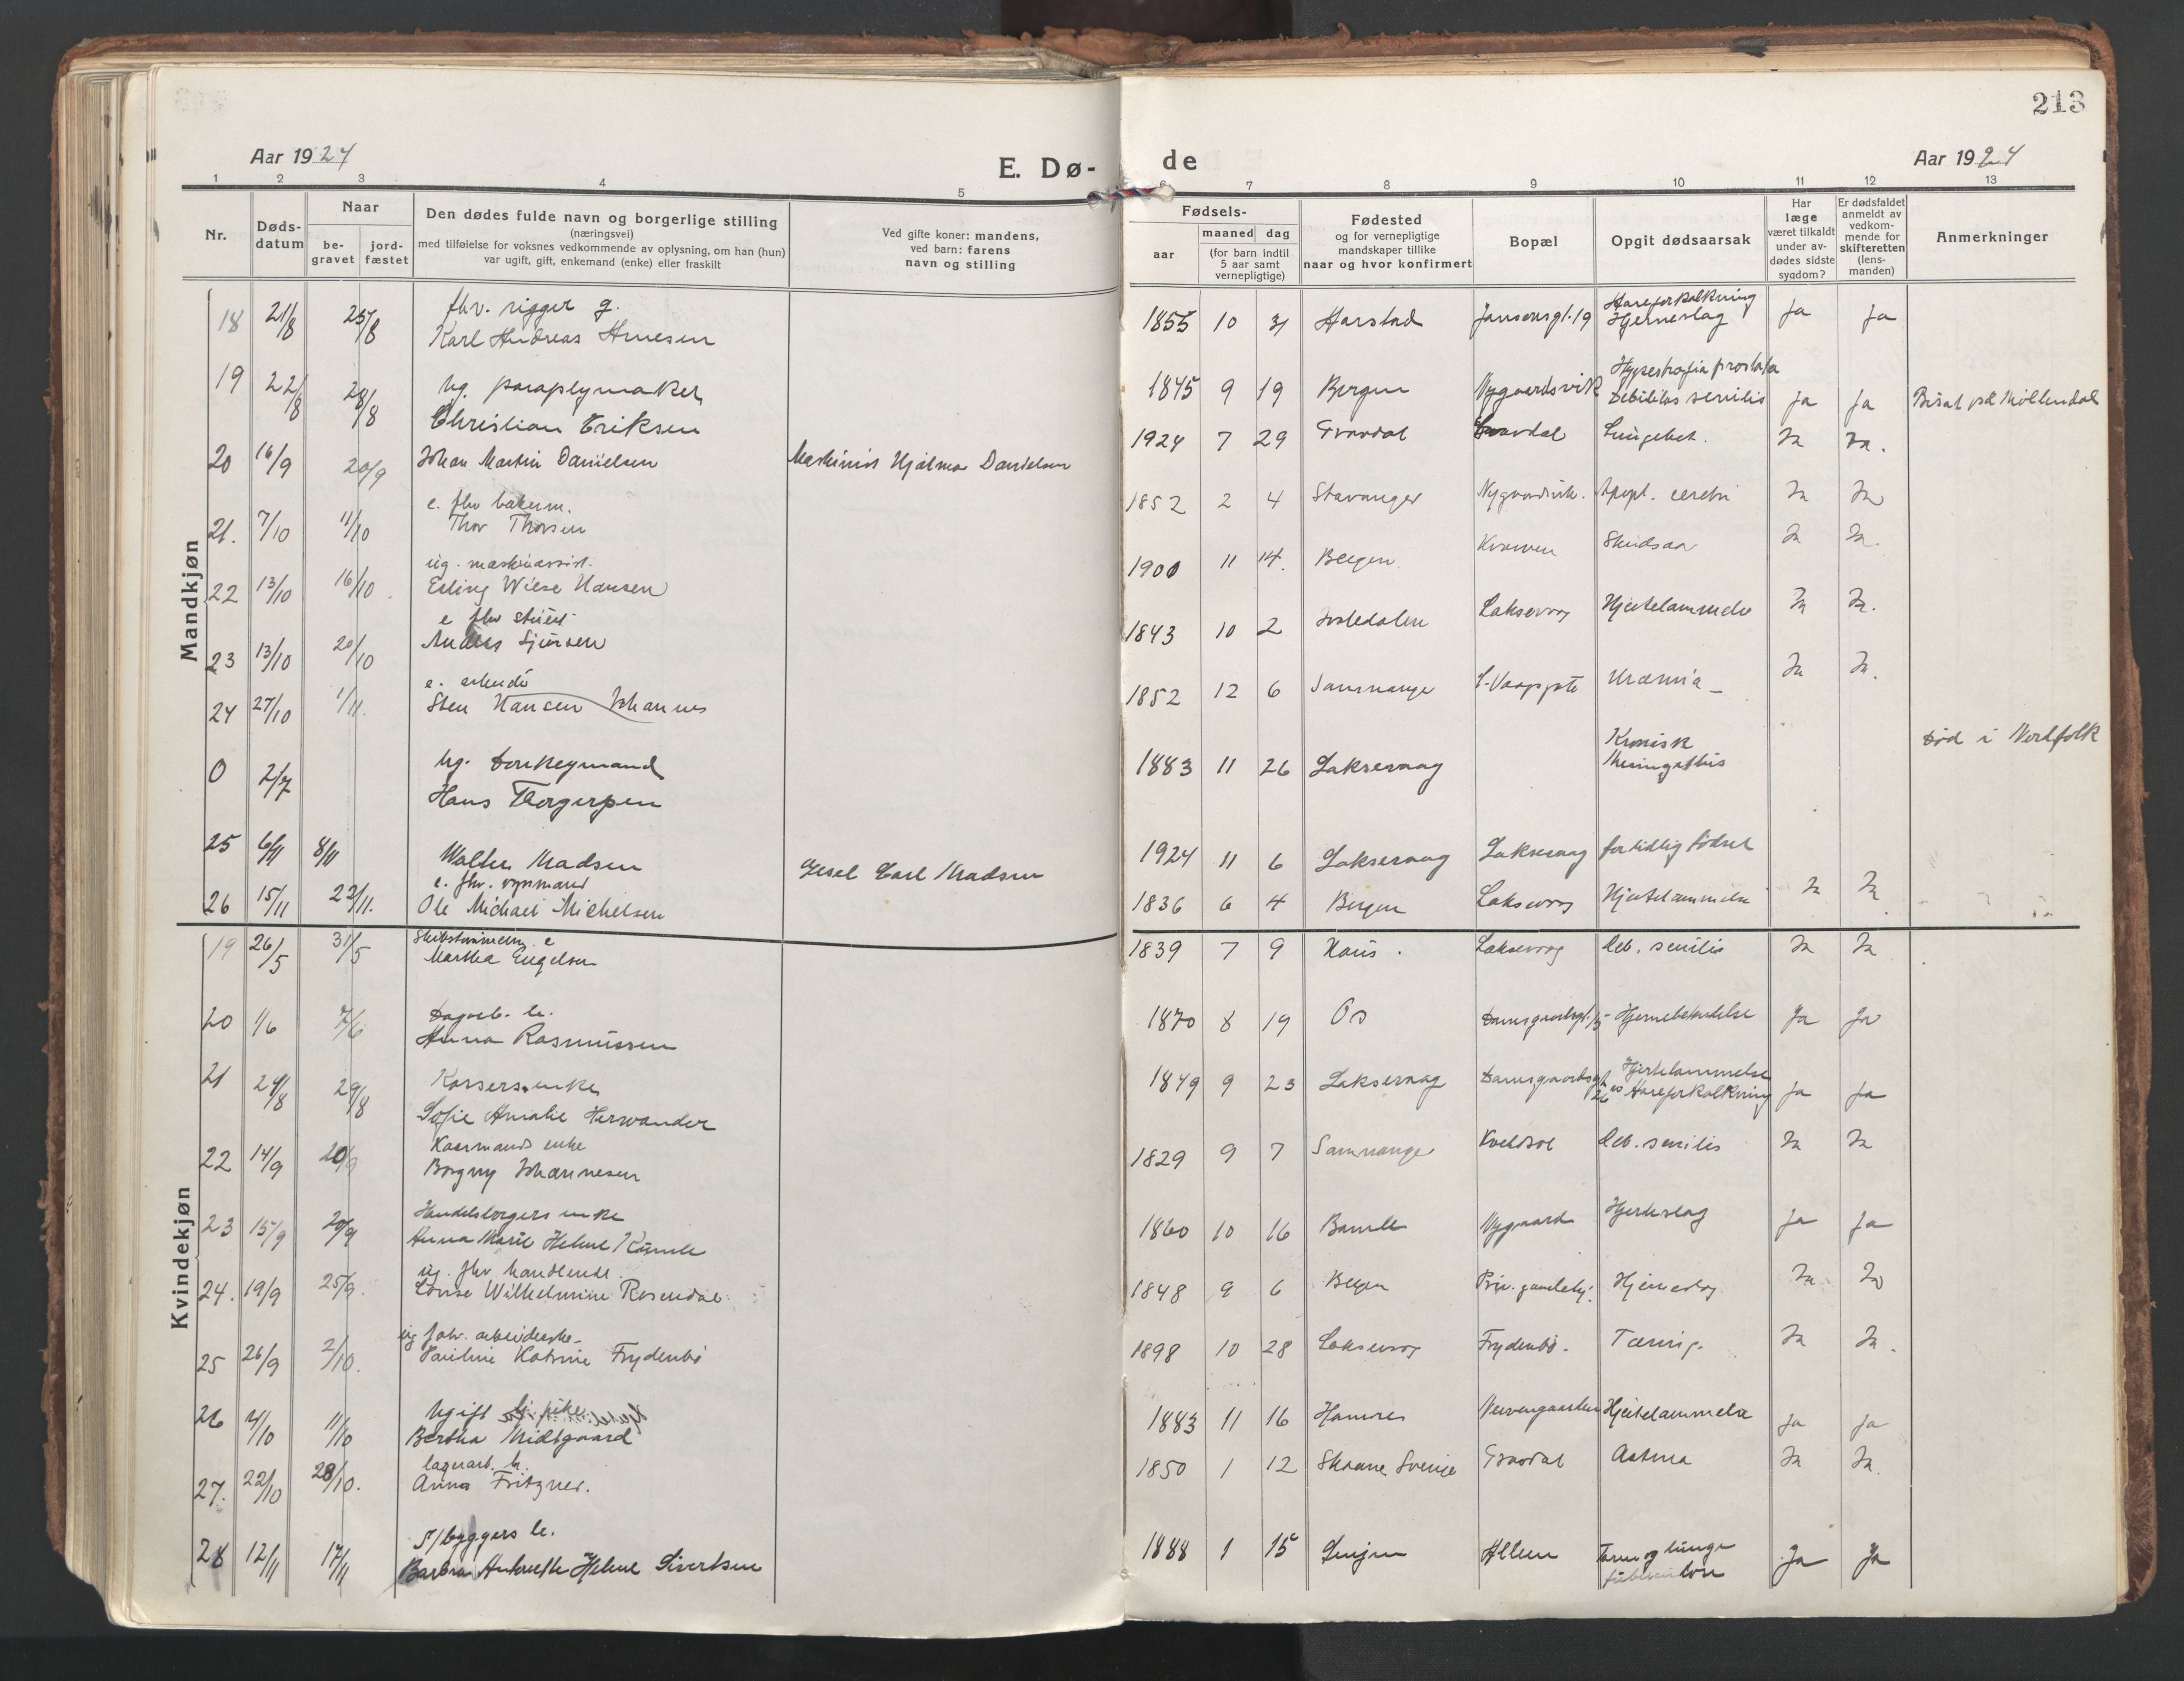 213
Aar 1924
E. Dø-
de
Aar 1924
1 2 3 4 5
6 7 8 9 10 11 12 13
Nr.
Døds-
datum
Naar
be-
gravet
jord-
fæstet
Den dødes fulde navn og borgerlige stilling
(næringsvei)
med tilføielse for voksnes vedkommende av oplysning, om han (hun)
var ugift, gift, enkemand (enke) eller fraskilt
Ved gifte koner: mandens,
ved barn: farens
navn og stilling
Fødsels-
aar
maaned dag
(for barn indtil
5 aar samt
vernepligtige)
Fødested
og for vernepligtige
mandskaper tillike
naar og hvor konfirmert
Bopæl
Opgit dødsaarsak
Har
læge
været tilkaldt
under av-
dødes sidste
sygdom?
Er dødsfaldet
anmeldt av
vedkom-
mende for
skifteretten
(lens-
manden)
Anmerkninger
Mandkjøn
18 21/8 25/8 fhv. rigger g.
Karl Andreas Arnesen
1855 10 31 Harstad Jansonsgt. 19 Aareforkalkning
Hjerneslag Ja Ja
19 22/8 28/8 Ug. paraplymaker
Christian Eriksen
1845 9 19 Bergen Nygaardsvik Hypertrofia prostata
Debilitas senilis Ja Ja Bisat på Møllendal
20 16/9 20/9 Johan Martin Danielsen Maskinist Hjalmar Danielsen
1924 7 29 Gravdal Gravdal Lungebet. Ja Ja.
21. 7/10 11/10 e. fhv bakerm.
Thor Thorsen
1852 2 4 Stavanger Nygaardsvik. Apopl. cerebri Ja Ja
22 13/10 16/10 ug. maskinassist.
Erling Wiese Hansen
1900 11 14. Bergen Kvarven Skudsaar Ja Ja.
23 13/10 20/10 e fhv
Anders Sjursen
1843 10 2 Laksevaag Hjertelammelse Ja Ja.
24 27/10 1/11. e. arbeider
Sten Hansen Johannes
1852 12 6 Samnanger Uræmia Ja Ja.
0 2/7 Ug. Donkeymand
Hans Thorgersen
1883 11 26 Laksevaag Kronisk
Meningithis Død i Nordfolk
25 6/11 8/11 Walter Madsen Carl Madsen
1924 11 6 Laksevaag Laksevaag for tidlig fødsel
26 15/11 22/11. e. fhv.
Ole Michael Michelsen
1836 6 4 Bergen Laksevaag Hjertelammelse Ja Ja
Kvindekjøn
19 26/5 31/5 Skibstømmerm. e
Martha Engelsen
1839 7 9 Haus. Laksevaag Deb. senilis Ja Ja
20 1/6 7/6 Dagarb. h.
Anna Rasmussen
1870 8 19 Os Damsgaardsgt. 15 Hjernebetændelse Ja Ja
21 24/8 29/8 enke
Sofie Amalie Herwander
1849 9 23 Laksevaag Damsgaardsgt 26 Hjertelammelse
Aareforkalkning Ja Ja
22 14/9 20/9 Kaarmands enke
Borgny Johannesen
1829 9 7 Samnanger Kveldsol Deb. senilis Ja Ja
23 15/9 20/9 Handelsborgers enke
Anna Marie Helene Kümle
1860 10 16 Bamle Nygaard Hjerteslag Ja Ja
24. 19/9 25/9. ug. fhv handlende.
Louise Wilhelmine Rosendal
1848 9 6 Bergen Hjerneslag Ja Ja
25 26/9 2/10. ug fhv. arbeiderske
Pauline Katrine Frydenbø
1898 10 28 Laksevaag Frydenbø. Tæring. Ja Ja.
26 4/10 11/10 Ugift pike
Bertha Midtgaard
1883 11 16 Hamre Hjertelammelse Ja Ja
27. 22/10 28/10. lagerarb. h.
Anna Fritzner.
1850 1 12 Skaane Sverige Gravdal Astma Ja Ja.
28 12/11 17/11 S/byggers h.
Barbra Antonette Helene Sivertsen
1888 1 15 Alleen Tarm og lunge
tuberkulose Ja Ja